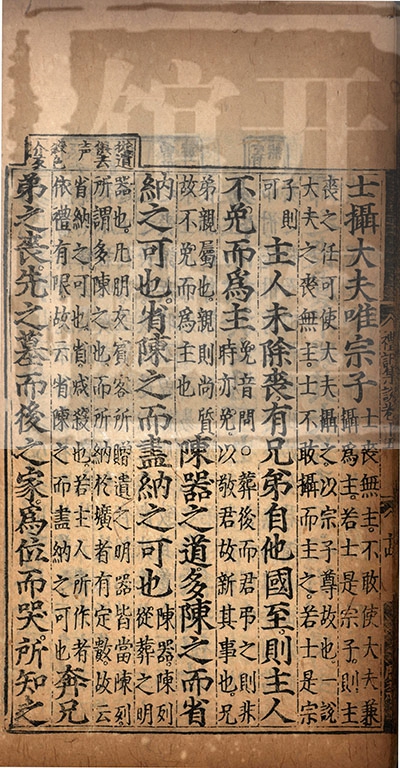 從遺
俱去
声
殺色
介反
士攝大夫唯宗子
士喪無主。不敢使大夫兼
攝爲主。若士是宗子。則主
喪之任可使大夫攝之。以宗子尊故也。一說
大夫之喪無主。士不敢攝而主之。若士是宗
子則
可
主人未除喪有兄弟自他國至。則主人
不免而爲主
免音問。葬後而君弔之則非
時亦免。以敬君故新其事也。兄
弟親屬也。親則尚質
故不免而爲主也
陳器之道。多陳之而省
納之可也。省陳之而盡納之可也
陳器。陳列
從葬之明
器也。凡朋友賓客所贈遺之明器皆當陳列
所謂多陳之也而所納於壙者有定數。故云
省納之可也。省。減殺也。若主人所作者
依禮有限。故云省陳之而盡納之可也
奔兄
弟之喪。先之墓而後之家爲位而哭。所知之